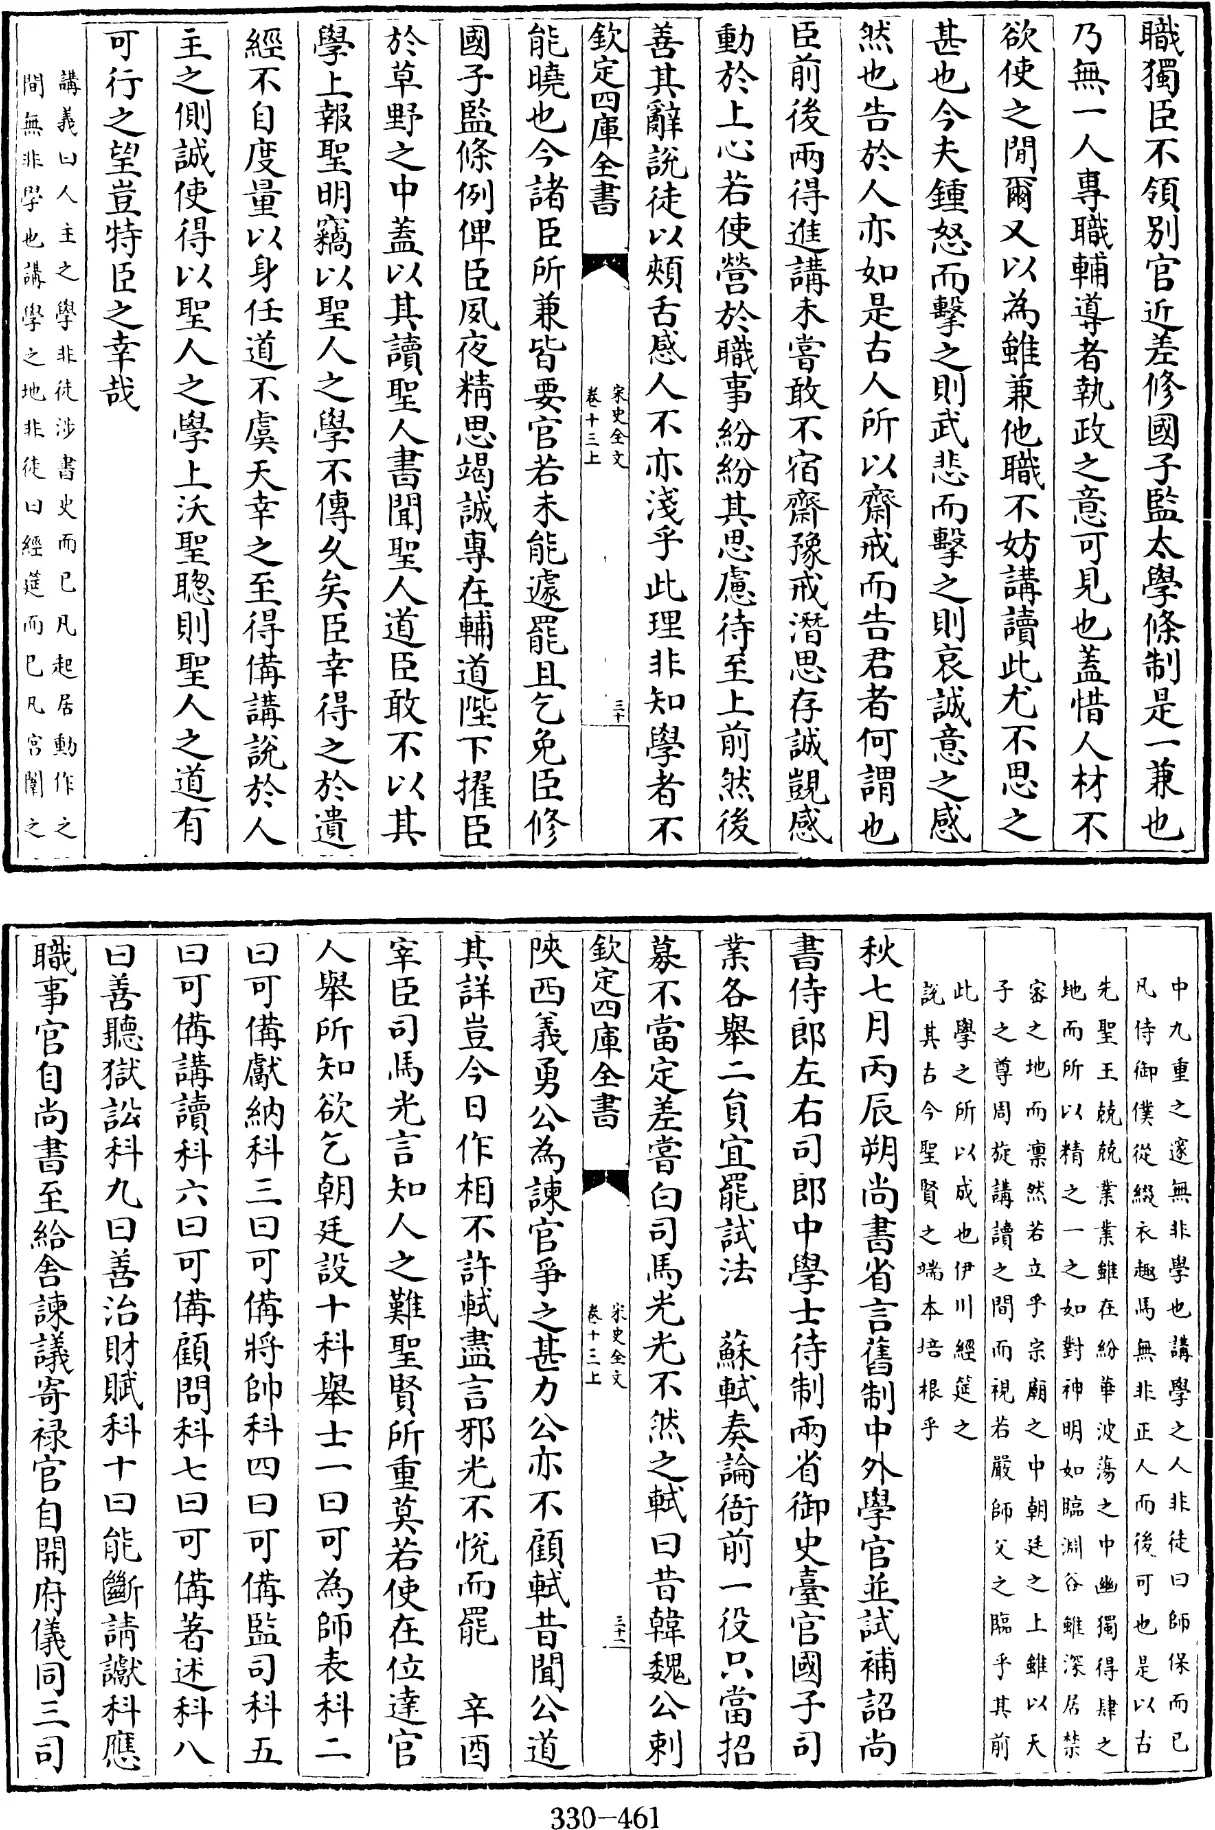 職獨臣不領別官近差修國子監太學條制是一兼也
乃無一人專職輔導者執政之意可見也蓋惜人材不
欲使之閒爾又以為雖兼他職不妨講讀此尤不思之
甚也今夫鍾怒而擊之則武悲而擊之則哀誠意之感
然也告於人亦如是古人所以齋戒而告君者何謂也
臣前後兩得進講未嘗敢不宿齋豫戒潛思存誠覬感
動於上心若使營於職事紛紛其思慮待至上前然後
善其辭說徒以頰舌感人不亦淺乎此理非知學者不
欽定四庫全書
宋史全文
卷十三上
三十
能曉也今諸臣所兼皆要官若未能遽罷且乞免臣修
國子監條例俾臣夙夜精思竭誠專在輔道陛下擢臣
於草野之中蓋以其讀聖人書聞聖人道臣敢不以其
學上報聖明竊以聖人之學不傳久矣臣幸得之於遺
經不自度量以身任道不虞天幸之至得備講說於人
主之側誠使得以聖人之學上沃聖聰則聖人之道有
可行之望豈特臣之幸哉
講義曰人主之學非徒涉書史而已凡起居動作之
間無非學也講學之地非徒曰經筵而已凡宮闈之
中九重之邃無非學也講學之人非徒曰師保而已
凡侍御僕從綴衣趣馬無非正人而後可也是以古
先聖王兢兢業業雖在紛華波蕩之中幽獨得肆之
地而所以精之一之如對神明如臨淵谷雖深居禁
密之地而凛然若立乎宗廟之中朝廷之上雖以天
子之尊周旋講讀之間而視若嚴師父之臨乎其前
此學之所以成也伊川經筵之
說其古今聖賢之端本培根乎
秋七月丙辰朔尚書省言舊制中外學官並試補詔尚
書侍郎左右司郎中學士待制兩省御史臺官國子司
業各舉二員宜罷試法　蘇軾奏論衙前一役只當招
募不當定差嘗白司馬光光不然之軾曰昔韓魏公刺
欽定四庫全書
宋史全文
卷十三上
三十一
陜西義勇公為諫官爭之甚力公亦不顧軾昔聞公道
其詳豈今日作相不許軾盡言邪光不悅而罷　辛酉
宰臣司馬光言知人之難聖賢所重莫若使在位達官
人舉所知欲乞朝廷設十科舉士一曰可為師表科二
曰可備獻納科三曰可備將帥科四曰可備監司科五
曰可備講讀科六曰可備顧問科七曰可備著述科八
曰善聽獄訟科九曰善治財賦科十曰能斷請讞科應
職事官自尚書至給舍諫議寄禄官自開府儀同三司
330-461